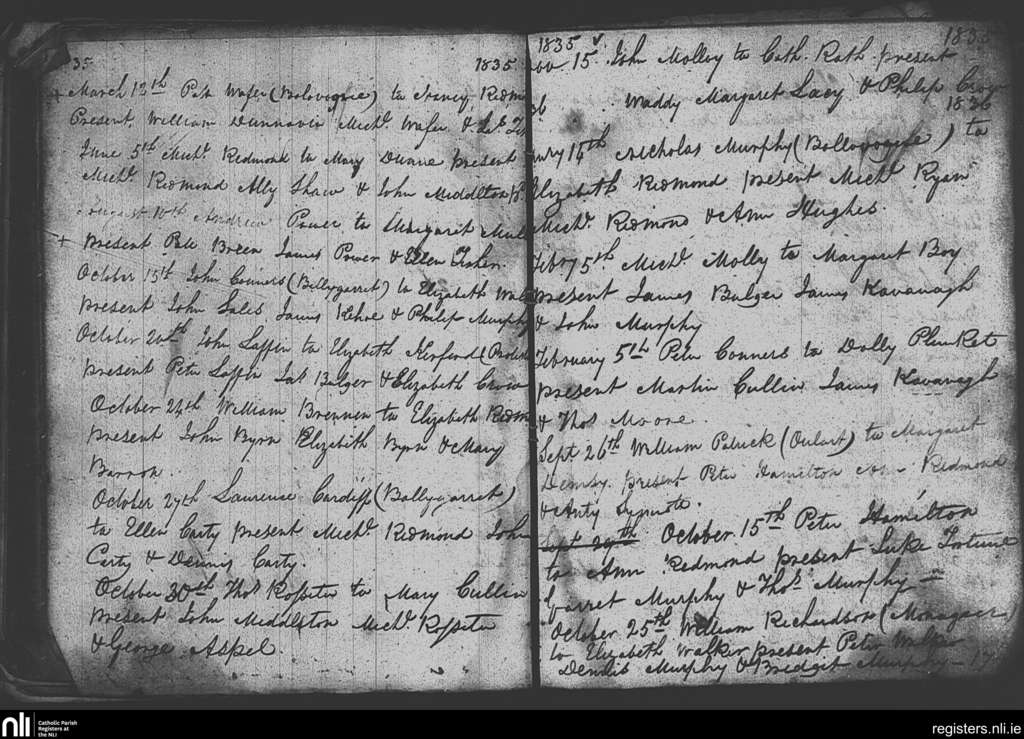 35 1835
March 12th Pat Wafer (Bolovogue) to Nancy Redm
Present William Dunnavin Michl. Wafer &
June 5th Michl. Redmond to Mary Duane present
Michl. Redmond Ally Shaw & John Middleton
August 10th Andrew Power to Margarit
+ present Pat Breen James Power & Ellen Fisher.
October 15th John Conners (Ballygarret) to Elizabeth
present John Sales, James Kehoe & Philip Murphy
October 20th John Laffin to Elizabeth
present Peter Laffin Jas Bulger & Elizabeth
October 24th William Brennen to Elizabeth Redm
present John Byrn Elizibith Byrn & Mary
Barron.
October 27th Laurence Cardiff (Ballygarret)
to Ellen Carty present Michl. Redmond John
Carty & Dennis Carty.
October 30th Thos Rossiter to Mary Cullin
present John Middleton Michl. Rossiter
& George Aspel.
1835 1835
15 John Molloy to Cath. Rath present
Waddy Margaret Lacy & Philip
36 1836
14th Nicholas Murphy (Bollovogue) to
Elizabeth Redmond present Michl. Ryan
Michl. Redmond & Ann Hughes.
Febry 5th Michl. Molly to Margaret Boy
present James Bulger James Kavanagh
& John Murphy
February 5th Peter Conners to Dolly Plunket
present Martin Cullin James Kavanagh
& Thos Moore.
Sept 26th William (Oulart) to Margaret
Demsy. present Peter Hamilton Redmond
&
Sept 29th October 15th Peter Hamilton
to Ann Redmond present Luke
Garret Murphy & Thos. Murphy —
October 25th William Richardson (Monageer
to Elizabeth Walker present Peter
Dennis Murphy & Bredgit Murphy — 17
nli Catholic Parish
Registers at
the NLI
registers.nli.ie